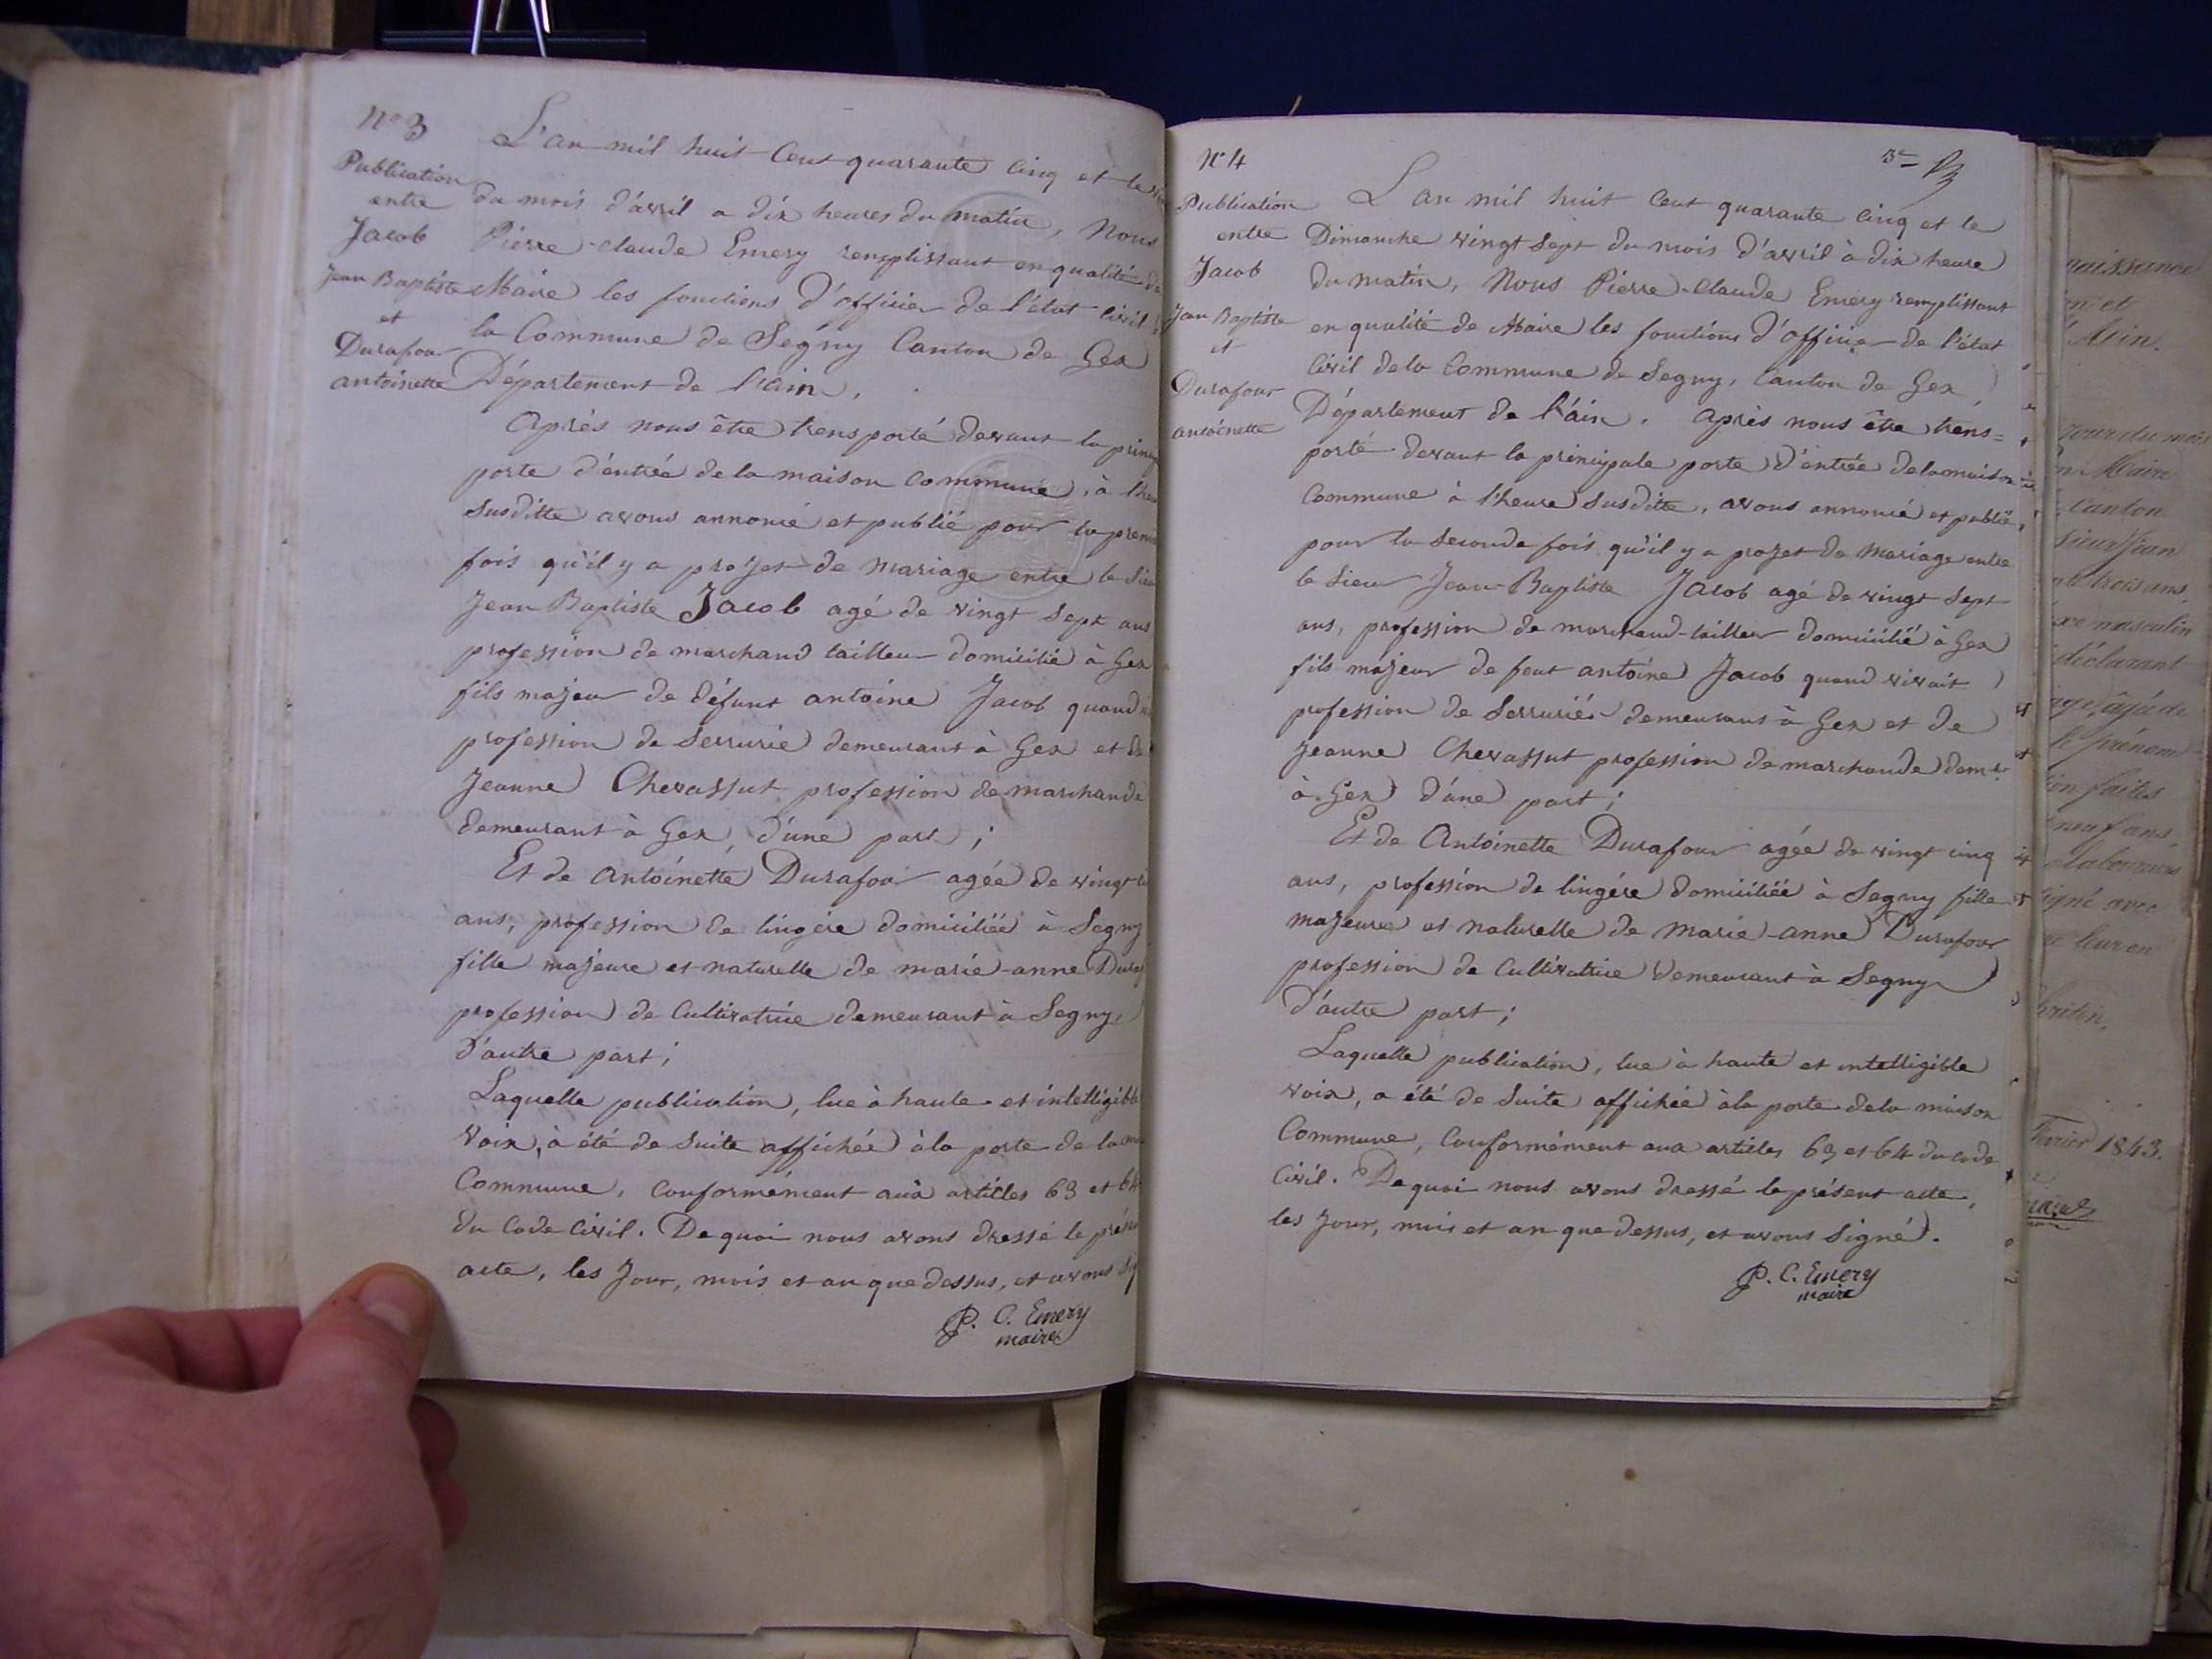 N° 3
Publication
entre
Jacob
Jean Baptiste
et
Durafour
antoinette
L'an mil huit Cent quarante Cinq et le
du mois d'avril a dix heures du matin, Nous
Pierre-Claude Emery remplissant en qualité de
Maire les fonctions d'officier de l'état Civil
la Commune de Ségny Canton de Gex
Département de l'ain.
Après nous être transporté devant la
porte d'entrée de la maison Commune, à
Susditte avons annoncé et publié pour la
fois qu'il y a projet de mariage entre le
Jean Baptiste Jacob agé de vingt Sept ans
profession de marchand tailleur domicilié à Gex
fils majeur de défunt antoine Jacob quand
profession de Serrurié demeurant à Gex et de
Jeanne Chevassut profession de marchande
demeurant à Gex, d'une part ;
Et de Antoinette Durafour agée de vingt
ans, profession de lingère domiciliée à Segny
fille majeure et naturelle de marie-anne
profession de Cultivatrice demeurant à Segny,
d'autre part ;
Laquelle publication, lue à haute et intelligible
Voix, à été de Suite affichée à la porte de la
Commune, Conformément aux articles 63 et 64
du Code Civil. De quoi nous avons dressé le
acte, les Jour, mois et an que dessus, et avons
P. C. Emery
maire
N° 4
3e
Publication
entre
Jacob
Jean Baptiste
et
Durafour
antoinette
L'an mil huit Cent quarante Cinq et le
Dimanche vingt Sept du mois d'avril à dix heure
du matin, Nous Pierre-Claude Emery remplissant
en qualité de Maire les fonctions d'officier de l'état
Civil de la Commune de Segny, Canton de Gex,
Département de l'ain. Après nous être trans=
porté devant la principale porte d'entrée de la maison
Commune à l'heure Susditte, avons annoncé et publié
pour la Seconde fois qu'il y a projet de Mariage entre
le Sieur Jean-Baptiste Jacob agé de vingt Sept
ans, profession de marchand-tailleur domicilié à Gex
fils majeur de feut antoine Jacob quand vivait
profession de Serrurier demeurant à Gex et de
Jeanne Chevassut profession de marchande demt
à Gex d'une part ;
Et de Antoinette Durafour agée de vingt cinq
ans, profession de lingère domiciliée à Segny fille
majeure et naturelle de Marie-anne Durafour
profession de Cultivatrice demeurant à Segny
d'autre part ;
Laquelle publication, lue à haute et intelligible
voix, a été de Suite affichée à la porte de la maison
Commune, Conformément aux articles 63 et 64 du code
Civil. De quoi nous avons dressé le présent acte,
les Jour, mois et an que dessus, et avons Signé.
P. C. Emery
maire
naissance
et
l'Ain.
jour du mois
Maire
canton
sieur Jean
trois ans,
masculin
déclarant
âgé de
prénom
faites
neuf ans,
laboureur
signé avec
leur en
février 1843.